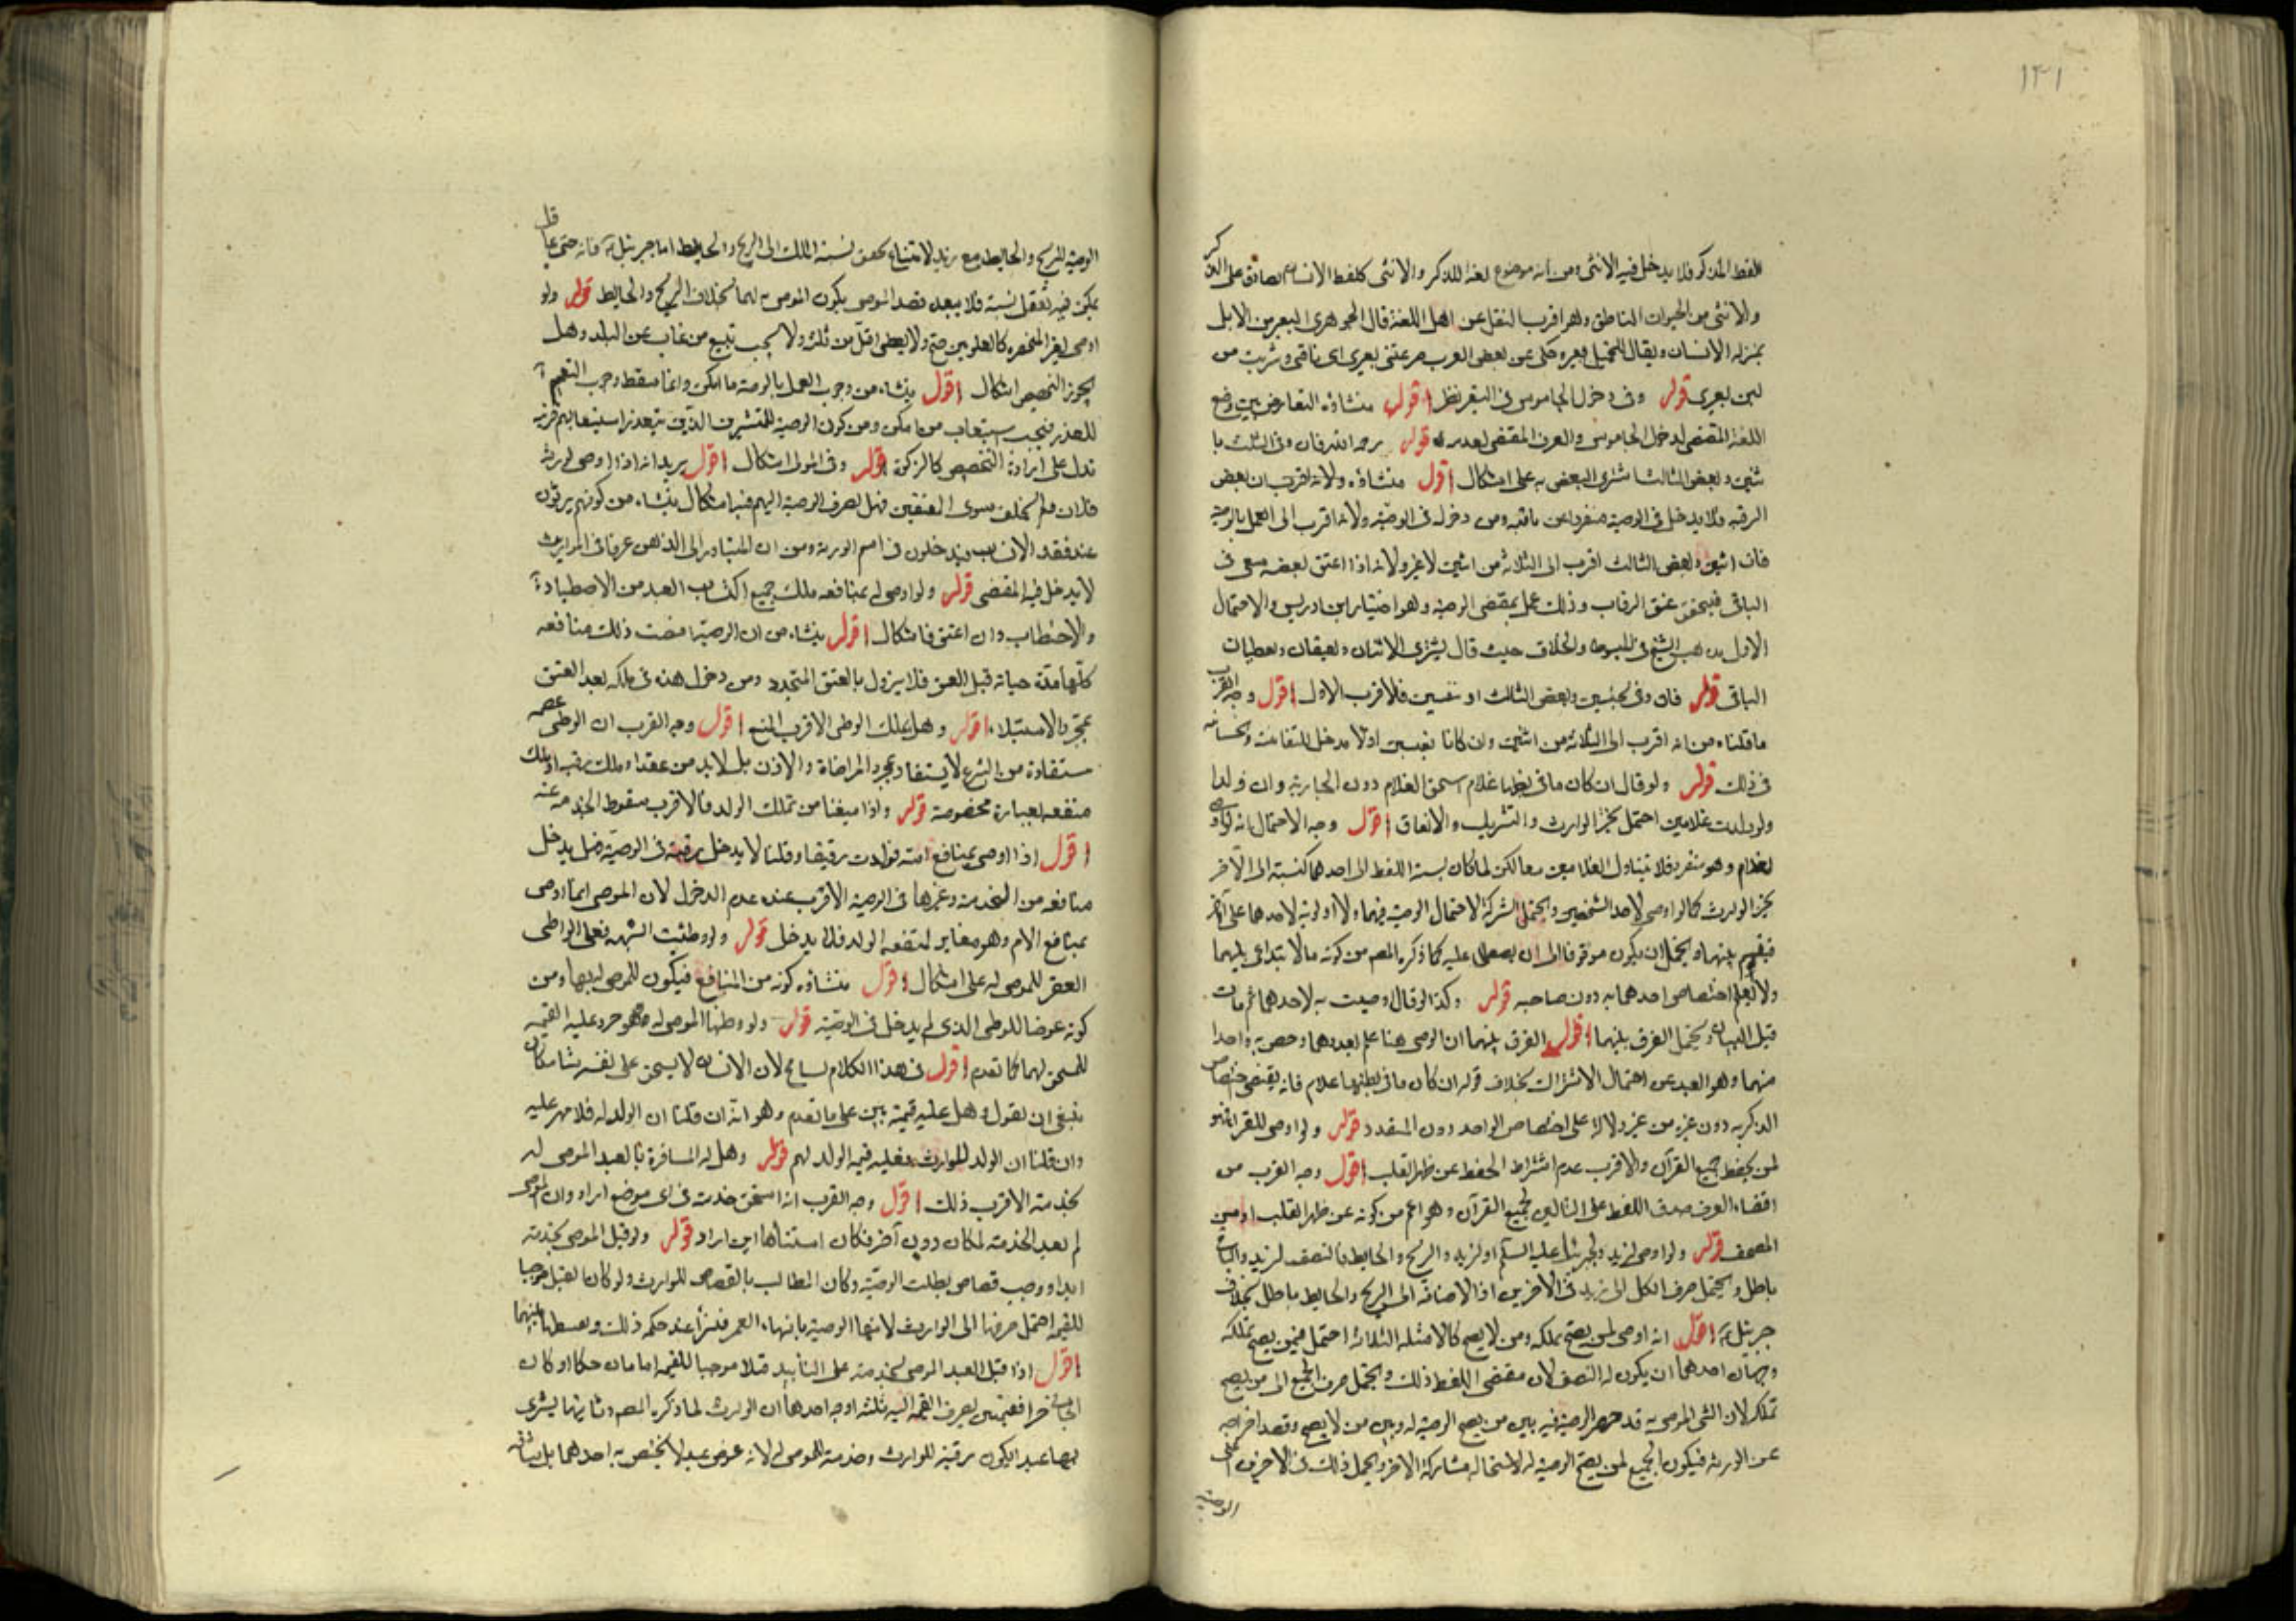 ١٤١
للفظ المذكر فلا يدخل فيه الانثى ومن انه موضوع لغة للذكر والانثى كلفظ الانسان صادق على الذكر
والانثى من الحيوان الناطق وهو اقرب لنقل عن اهل اللغة قال الجوهرى البعير من الابل
بمنزلة الانسان ويقال للجمل بعير وحكى عن بعض العرب صرعتنى بعيرى اى ناقتى وشربت من
لبن بعيرى قوله وفى دخول الجاموس فى البقر نظر اقول منشاؤه التعارض بين وضع
اللغة المقتضى لدخول الجاموس والعرف المقتضى لعدمه قوله رحمه الله فان وفى الثلث با
ثنين وبعض الثالث اشترى البعض به على اشكال اقول منشاؤه ولانه اقرب ان بعض
الرقبة فلا يدخل فى الوصية منفردا عن باقيه ومن دخوله فى الوصية ولانه اقرب الى العمل بالوصية
فان اثنين وبعض الثالث اقرب الى الثلاثة من اثنين لا غير ولانه اذا اعتق بعضه سعى فى
الباقى فيتحقق عتق الرقاب وذلك عمل بمقتضى الوصية وهو اختيار ابن ادريس والاحتمال
الاول مذهب الشيخ فى المبسوط والخلاف حيث قال يشترى الاثنان ويعتقان ويعطيان
الباقى قوله فان وفى بخسيسين وبعض الثالث او نفيسين فالاقرب الاول اقول وجه القرب
ما قلناه من انه اقرب الى الثلاثة من اثنين وان كانا نفيسين اذ لا مدخل للنفاسة والخساسة
فى ذلك قوله ولو قال ان كان ما فى بطنها غلام استحق الغلام دون الجارية وان ولدا
ولو ولدت غلامين احتمل تخير الوارث والتشريك والايقاف اقول وجه الاحتمال انه لو اوصى
لغلام وهو منفرد فلا يتناول الغلامين معا لكن لما كان نسبة اللفظ الى احدهما كنسبته الى الآخر
تخير الوارث كما لو اوصى لاحد الشخصين ويحتمل الشركة لاحتمال الوصية فيهما ولا اولوية لاحدهما على الآخر
فيقسم بينهما ويحتمل ان يكون موقوفا الى ان يصطلحا عليه كما ذكره المصـ من كونه مالا يتداعى بينهما
ولا نعلم اختصاص احدهما به دون صاحبه قوله وكذا لو قال اوصيت به لاحدهما ثم مات
قبل البيان ويحتمل الفرق بينهما اقول الفرق بينهما ان الوصى هنا علم بعددهما وخص به واحدا
منهما وهو ابعد عن احتمال الاشتراك بخلاف قوله ان كان ما فى بطنها غلام فانه يقتضى اختصاص
الذكر به دون غيره من غير دلالة على اختصاص الواحد دون المتعدد قوله ولو اوصى للقراء فهو
لمن يحفظ جميع القرآن والاقرب عدم اشتراط الحفظ عن ظهر القلب اقول وجه القرب من
اقتضاء العرف صدق اللفظ على التالين لجميع القرآن وهو اعم من كونه عن ظهر القلب او من
المصحف قوله ولو اوصى لزيد ولجبرئيل عليه السلام او لزيد والريح والحايط فالنصف لزيد والباقى
باطل ويحتمل صرف الكل الى زيد فى الاخيرين اذ الاضافة الى الريح والحايط باطل بخلاف
جبرئيل اقول انه اوصى لمن يصح تملكه ومن لا يصح كالامثلة الثلاثة احتمل فيمن يصح تملكه
وجهان احدهما ان يكون له النصف لان مقتضى اللفظ ذلك ويحتمل صرف الجميع الى من يصح
تملكه لان الشى الموصى به قد حصر الوصية فيه بين من يصح الوصية له وبين من لا يصح وقصد اخراجه
عن الورثة فيكون الجميع لمن يصح الوصية له لاستحالة مشاركة الاخر ويحتمل ذلك فى الاخيرين اعنى
الوصية
الوصية للريح والحايط مع زيد لامتناع تحقق نسبة الملك الى الريح والحايط اما جبرئيل فانه حى عاقل
يمكن فيه تعقل نسبة فلا يبعد قصد الموصى بكون الموصى به لهما بخلاف الريح والحايط قوله ولو
اوصى لغير المنحصر كالعلويين صح ولا يعطى اقل من ثلثة ولا يجب تتبع من غاب عن البلد وهل
يجوز التخصيص اشكال اقول ينشاء من وجوب العمل بالوصية ما امكن وانما سقط وجوب التعميم
للعذر فيجب استيعاب من امكن ومن كون الوصية للمنتشرين الذين يتعذر استيعابهم قرينة
تدل على ارادة التخصيص كالزكوة قوله وفى المولى اشكال اقول يريد انه اذا اوصى لورثة
فلان ولم يخلف سوى المعتقين فهل يصرف الوصية اليهم فيه اشكال ينشاء من كونهم يرثون
عند فقد الانساب فيدخلون فى اسم الورثة ومن ان المتبادر الى الذهن عرفا فى المواريث
لا يدخل فيه المقتضى قوله ولو اوصى له بمنافعه ملك جميع اكتساب العبد من الاصطياد
والاحتطاب وان اعتق فاشكال اقول ينشاء من ان الوصية اقتضت ذلك منافعه
كلها مدة حياته قبل العتق فلا يزول بالعتق المتجدد ومن دخول هذه فى ملكه بعد العتق
بمجرد الاستيلاء قوله وهل يملك الوطى الاقرب المنع اقول وجه القرب ان الوطى عصمة
مستفادة من الشرع لا يستفاد بمجرد المراضاة والاذن بل لا بد من عقد او ملك رقبة او ملك
منفعة بعبارة مخصوصة قوله واذا منعنا من تملك الولد فالاقرب سقوط الخدمة عنه
اقول اذا اوصى بمنافع امته فولدت رقيقا وقلنا لا يدخل رقبته فى الوصية فهل يدخل
منافعه من الخدمة وغيرها فى الوصية الاقرب عنده عدم الدخول لان الموصى انما اوصى
بمنافع الام وهو مغاير لمنفعة الولد فلا يدخل قوله ولو وطئت لشبهة فعلى الواطى
العقر للموصى له على اشكال اقول منشاؤه كونه من المنافع فيكون للموصى له بها ومن
كونه عوضا للوطى الذى لم يدخل فى الوصية قوله ولو وطئها الموصى له فهو حر وعليه القيمة
للمستحق لهما كما تقدم اقول فى هذا الكلام تسامح لان الانسان لا يستحق على نفسه شيئا فكان
ينبغى ان يقول وهل عليه قيمة يبنى على ما تقدم وهو انه ان قلنا ان الولد له فلا مهر عليه
وان قلنا ان الولد للوارث فعليه قيمة الولد لهم قوله وهل له المسافرة بالعبد الموصى له
بخدمته الاقرب ذلك اقول وجه القرب انه استحق خدمته فى اى موضع اراد وان الموصى
لم يعد الخدمة لمكان دون آخر فكان استيفاها اين اراد قوله ولو قتل الموصى بخدمته
ابدا ووجب قصاص بطلت الوصية وكان المطالب بالقصاص للوارث ولو كان القتل موجبا
للقيمة احتمل صرفها الى الوارث لانتهاء الوصية بانتهاء العمر
اقول اذا قتل العبد الموصى بخدمته على التأبيد قتلا موجبا للقيمة اما
الجانى حرا ففيمن يصرف القيمة اليه ثلثة اوجه احدها ان الوارث لما ذكره المصـ وثانيها يشترى
بها عبدا يكون رقبته للوارث وخدمته للموصى له لانه عوض عبد لا يختص به احدهما بل